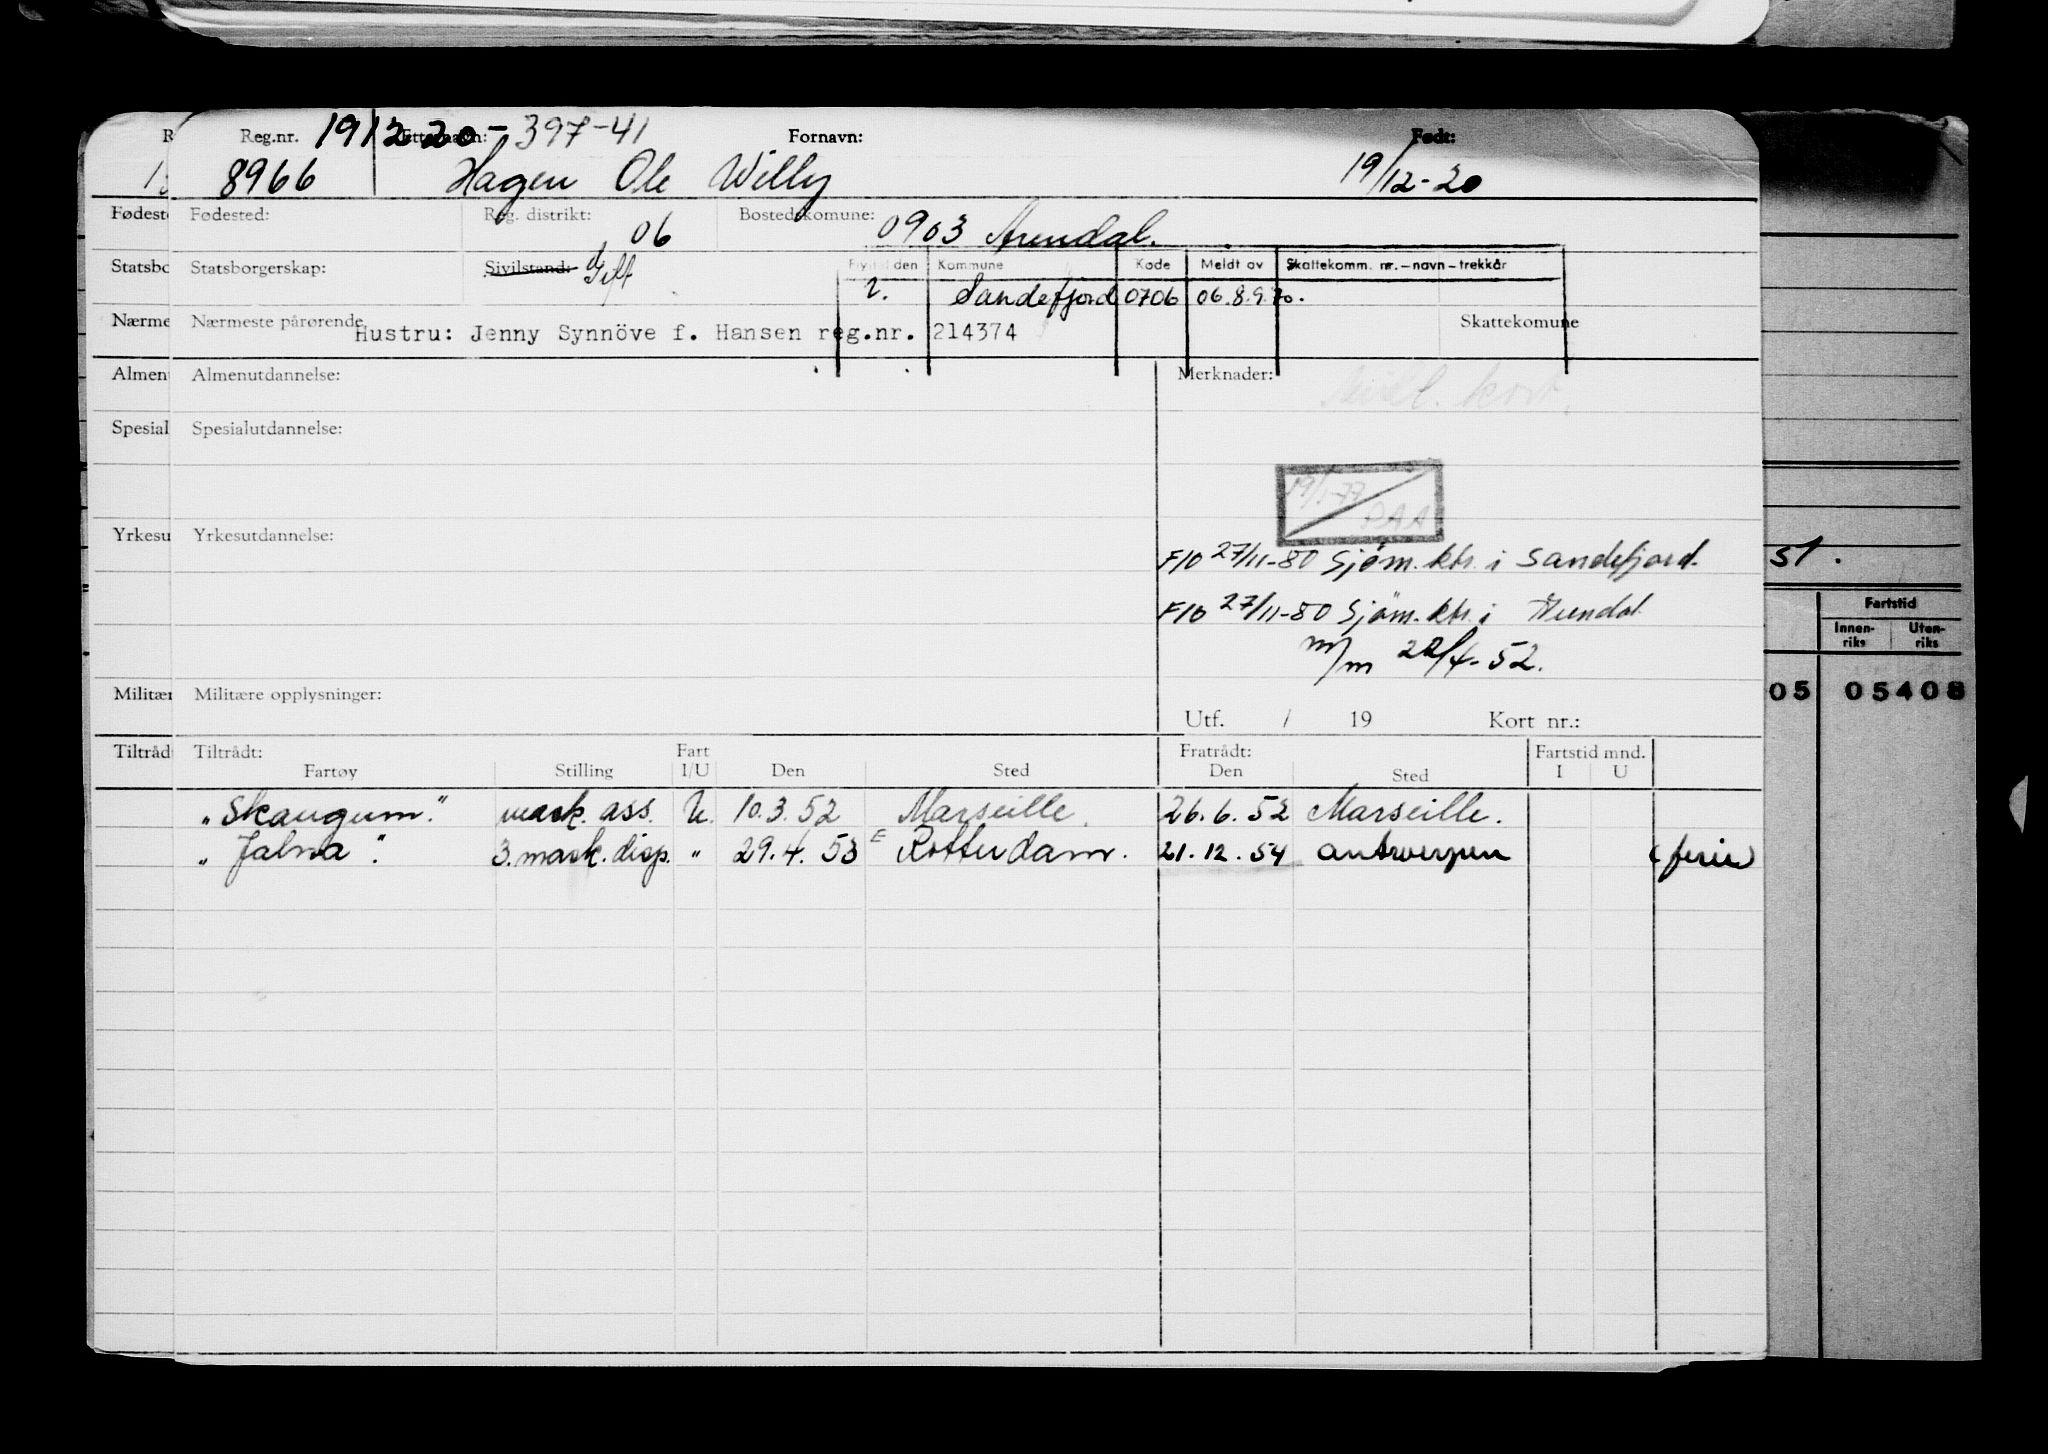 Reg.nr. 191220- Etternavn: 397-41 Fornavn: Født:
8966 Hagen Ole Willy 19/12-20
Fødested: Reg. distrikt: 06 Bostedskomune: 0903 Arendal.
Statsborgerskap: Sivilstand: Gift
Flyttet den Kommune Kode Meldt av Skattekomm. nr.–navn–trekkår
2. Sandefjord 0706 06.8.9.70.
Nærmeste pårørende Hustru: Jenny Synnöve f. Hansen reg.nr. 214374 Skattekomune
Almenutdannelse: Merknader:
kort.
Spesialutdannelse:
19/1-77
PAA
Yrkesutdannelse:
F10 27/11-80 Sjøm.ktr. i Sandefjord.
F10 27/11-80 Sjøm.ktr. i Arendal
m/m 22/4-52.
Militære opplysninger:
Utf. / 19 Kort nr.:
Tiltrådt: Fratrådt: Fartstid mnd.
Fartøy Stilling Fart I/U Den Sted Den Sted I U
"Skaugum." mask. ass. U. 10.3.52 Marseille. 26.6.52 Marseille.
"Jalna". 3. mask. disp. " 29.4.53 Rotterdam. 21.12.54 Antwerpen (ferie)
st.
Fartstid
Innen-riks Uten-riks
05 05408